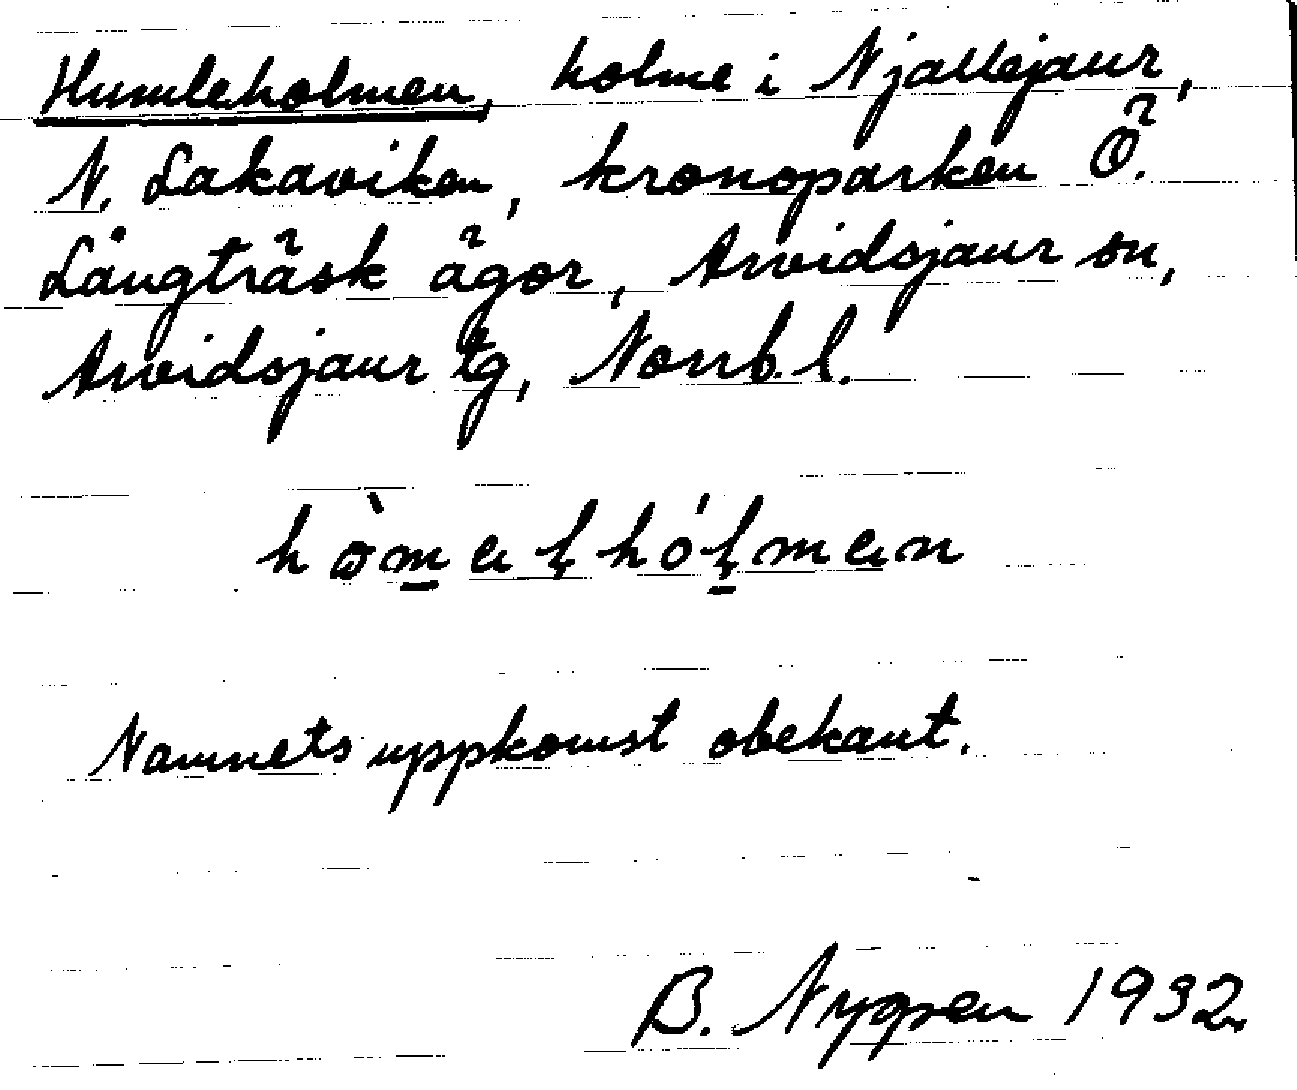 Humleholmen, holme i Njallejaur,
N. Lakaviken, kronoparken Ö.
Långträsk ägor, Arvidsjaur sn,
Arvidsjaur tg, Norrb. l.
Namnets uppkomst obekant.
B. Nygren 1932